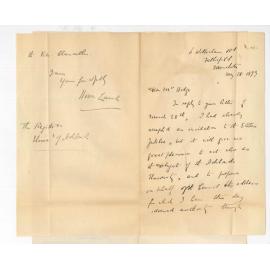 Withington
Manchester
May 18 1893
Dear Mr Hodge
In reply to your letter of
March 28th, I had already
accepted an invitation to the
Jubilee, but it will give me
great pleasure to act also as
delegate of the Adelaide
University, and to prepare
on behalf of the Council the address
for which I have this day
received authority through
I am
Yours faithfully
Horace Lamb
The Registrar
University of Adelaide